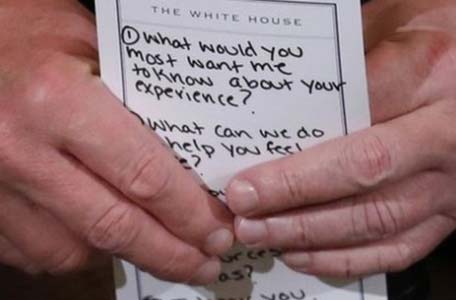 THE WHITE HOUSE
① What would you
most want me
to know about your
experience?
What can we do
help you feel
?
?
you